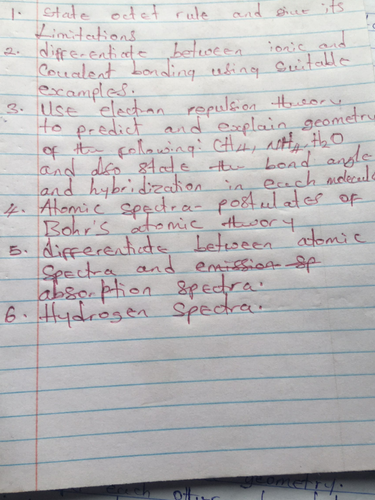 1. State octet rule and give its
Limitations
2. differentiate between ionic and
Covalent bonding using suitable
examples.
3. Use electron repulsion theory
to predict and explain geometry
of the following: CH4, NH4, H2O
and also state the bond angle
and hybridization in each molecule
4. Atomic spectra - postulates of
Bohr's atomic theory
5. differentiate between atomic
Spectra and emission sp
absorption spectra.
6. Hydrogen Spectra.
each other geometry.